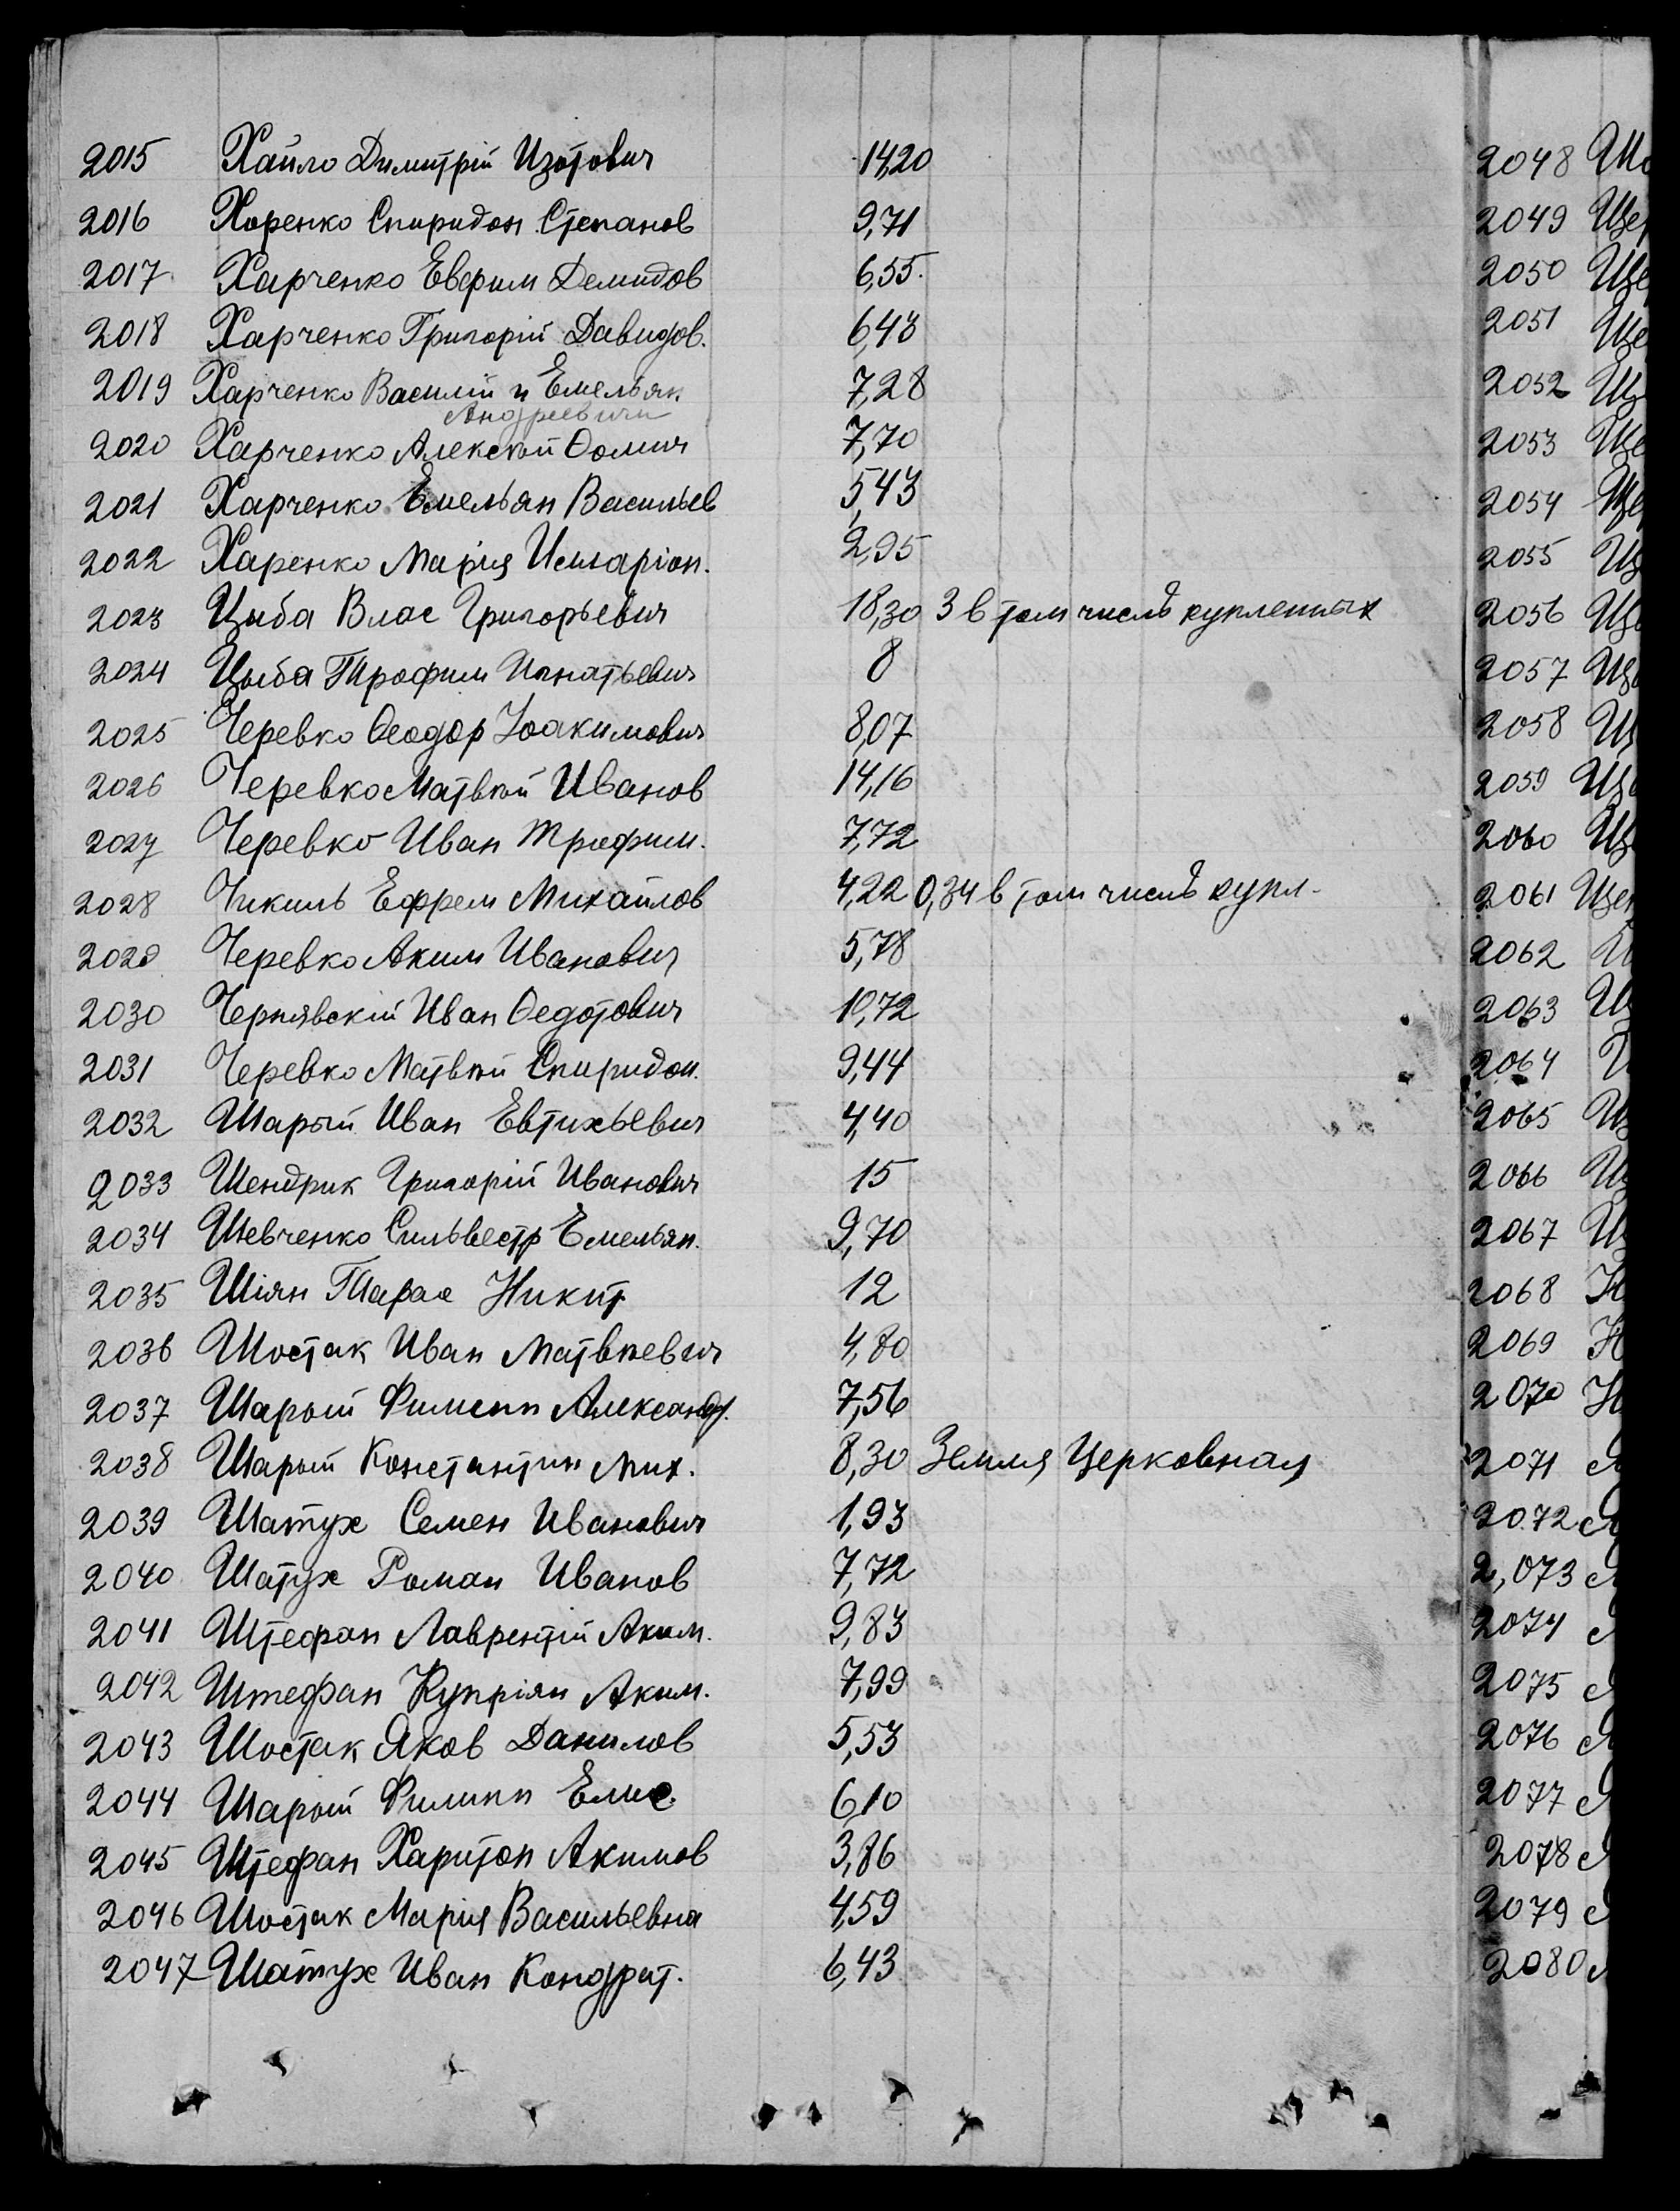 2015 Хайло Димитрій Изотович 14,20
2016 Хоренко Спиридон Степанов 9,71
2017 Харченко Еверим Демидов 6,55.
2018 Харченко Григорій Давидов. 6,43
2019 Харченко Василій и Емельян 7,28
Андреевичи
2020 Харченко Алексѣй Ѳомич 7,70
2021 Харченко Емельян Васильев 5,43
2022 Харенко Марія Иларіон. 2,95
2023 Цыба Влас Григорьевич 18,30 3 в том числѣ купленных
2024 Цыба Трофим Игнатьевич 8
2025 Черевко Ѳеодор Іоакимович 8,07
2026 Черевко Матвѣй Иванов 14,16
2027 Черевко Иван Трофим. 7,72
2028 Чикиль Ефрем Михайлов 4,22 0,34 в том числѣ купл.
2029 Черевко Аким Иванович 5,78
2030 Чернявскій Иван Ѳедотович 10,72
2031 Черевко Матвѣй Спиридон. 9,44
2032 Шарый Иван Евтихьевич 4,40
2033 Шендрик Григорій Иванович 15
2034 Шевченко Сильвестр Емельян. 9,70
2035 Шіян Тарас Никит. 12
2036 Шостак Иван Матвѣевич 4,80
2037 Шарый Филипп Александр. 7,56
2038 Шарый Константин Мих. 8,30 Земля Церковная
2039 Шатух Семен Иванович 1,93
2040 Шатух Роман Иванов 7,72
2041 Штефан Лаврентій Аким. 9,83
2042 Штефан Купріян Аким. 7,99
2043 Шостак Яков Данилов 5,53
2044 Шарый Филипп Елис. 6,10
2045 Штефан Харитон Акимов 3,86
2046 Шостак Марія Васильевна 4,59
2047 Шатух Иван Кондрат. 6,43
2048
2049
2050
2051
2052
2053
2054
2055
2056
2057
2058
2059
2060
2061
2062
2063
2064
2065
2066
2067
2068
2069
2070
2071
2072
2,073
2074
2075
2076
2077
2078
2079
2080